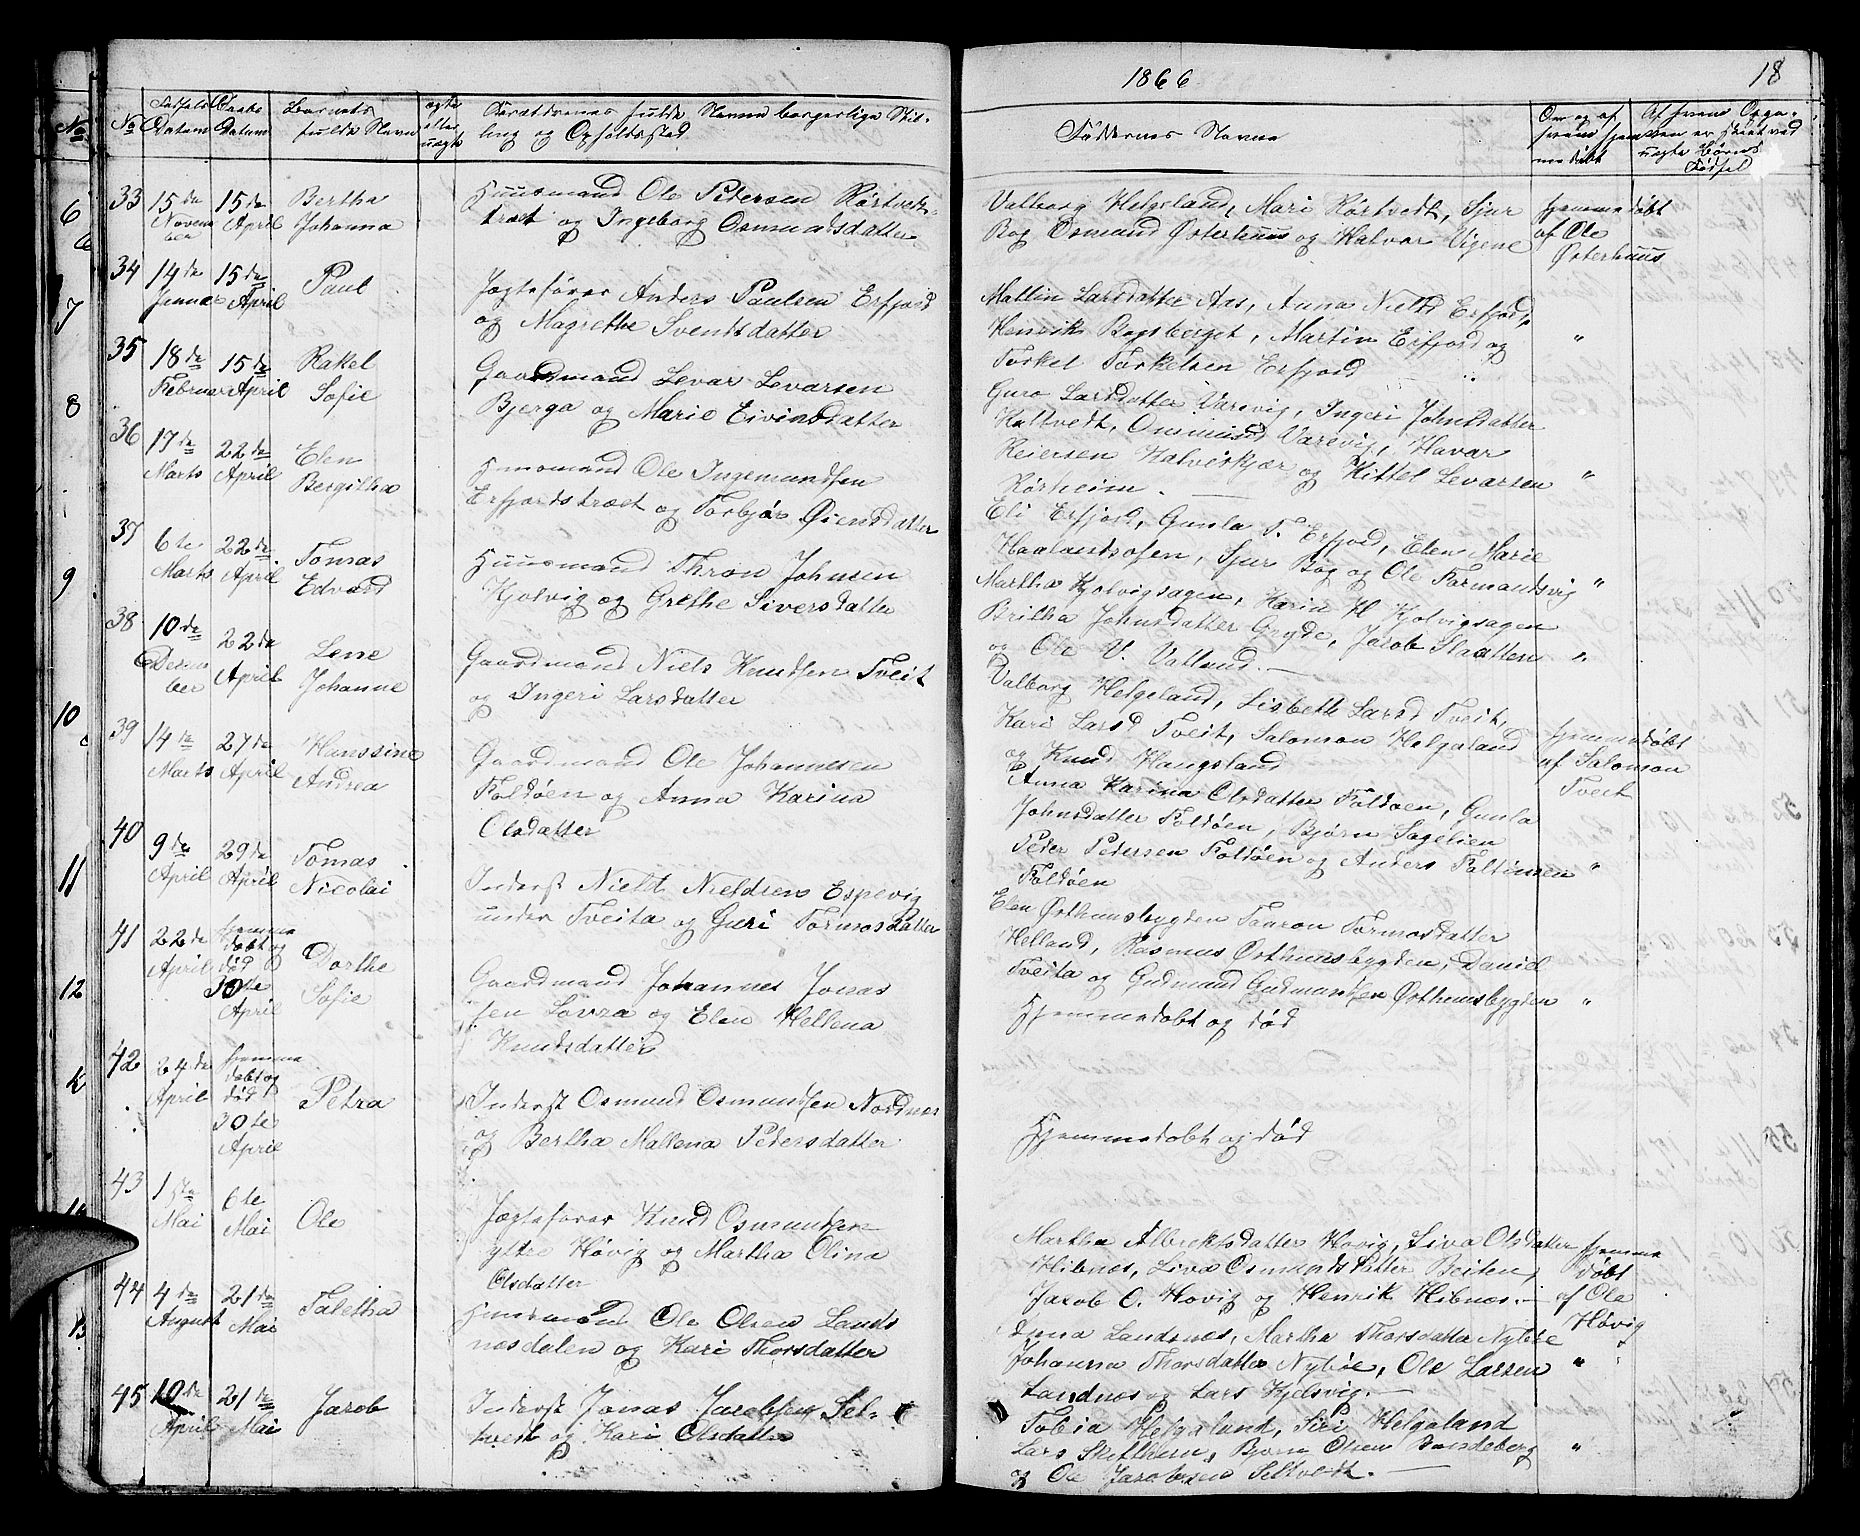 1866
18
No
Fødsels Datum
Daabs Datum
Barnets fulde Navn
ægte eller uægte
Forældrenes fulde Navne borgerlige Stilling og Opholdssted
Faddernes Navne
Om og af hvem hjemmedøbt
33 15de November 15de April Bertha Johanna
Huusmand Ole Pedersen Rørtvedt-
træt og Ingeborg Osmundsdatter
Valborg Helgeland, Mari Rørtvedt, Sjur
Bog Osmund Østerhuus og Halvor Vigene
hjemmedøbt
af Ole
Østerhuus
34 14de Januar 15de April Paul
Jægtefører Anders Paulsen Erfjord
og Magrethe Sventsdatter
Mallin Larsdatter Aas, Anna Nielsd Erfjord,
Henrik Bogsberget, Martin Erfjord og
Torkel Torkelsen Erfjord "
35 18de Februar 15de April Rakel Sofie
Gaardmand Levar Levarsen
Bjerga og Marie Eivindsdatter
Guro Larsdatter Varevig, Ingeri Johnsdatter
Kaltvedt, Osmund Varevig, Havar
Reiersen Halvirkjær og Kittel Levarsen "
Rørheim.
36 17de Marts 22de April Elen Bergitha
Huusmand Ole Ingemundsen
Erfjordstræet og Torbjør Øiensdatter
Eli Erfjord, Gunla T. Erfjord, Elen Marie
Haalandsosen, Sjur Bog og Ole Tormandsvig "
37 6te Marts 22de April Tomas Edvard
Huusmand Thron Johnsen
Kjolvig og Grethe Siversdatter
Martha Kjolvigsagen, Karin H Kjolvigsagen
Britha Johnsdatter Gryde, Jacob Slaatten "
og Ole V. Vatland.
38 10de December 22de April Lene Johanne
Gaardmand Niels Knudsen Tveit
og Ingeri Larsdatter
Valborg Helgeland, Lisbeth Larsd Tveit,
Kari Larsd Tveit, Salomon Helgeland
og Knud Haugsland
hjemmedøbt
af Salomon
Tveit
39 14de Marts 27de April Hanssine Andrea
Gaardmand Ole Johannesen
Foldøen og Anna Karina
Olsdatter
Anna Karina Olsdatter Foldøen, Gunla
Johnsdatter Foldøen, Bjørn Sagelien
Peder Pedersen Foldøen og Anders Faltinsen "
Foldøen
40 9de April 29de April Tomas Nicolai
Inderst Nield Nieldsen Espevig
under Tveita og Guri Tormosdatter
Elen Østhunsbygden Taaron Tormosdatter
Helland, Rasmus Østhunsbygden, David
Tveita og Gudmund Gudmundsen Østhunsbygden "
41 22de April hjemmedøbt og død 30te April Dorthe Sofie
Gaardmand Johannes Jonas
sen Lovra og Elen Hellena
Knudsdatter
Hjemmedøbt og død
42 24de April hjemmedøbt og død 30te April Petra
Inderst Osmund Osmundsen Nordnes
og Bertha Mallena Pedersdatter
Hjemmedobt og død
43 1ste Mai 6te Mai Ole
Jægtefører Knud Osmundsen
yttre Høvig og Martha Olina
Olsdatter
Martha Albrektsdatter Hovig, Siva Olsdatter
Hibnes, Liva Osmundsdatter Beiten,
Jacob O. Hovig og Henrik Hibnes.
hjemme
døbt
af Ole
Høvig
44 4de August 21de Mai Taletha
Huusmand Ole Olsen Lands
nesdalen og Kari Thorsdatter
Anna Landsnes, Martha Thorsdatter Nybøe
Johanna Thorsdatter Nybøe, Ole Larsen "
Landnes og Lars Kjelsvig.
45 10de April 21de Mai Jacob
Inderst Jonas Jacobsen Sel-
tvedt og Kari Olsdatter
Tobia Helgeland, Siri Helgeland
Lars Skutthem, Bjørn Olsen Bandeberg "
og Ole Jacobsen Seltvedt.